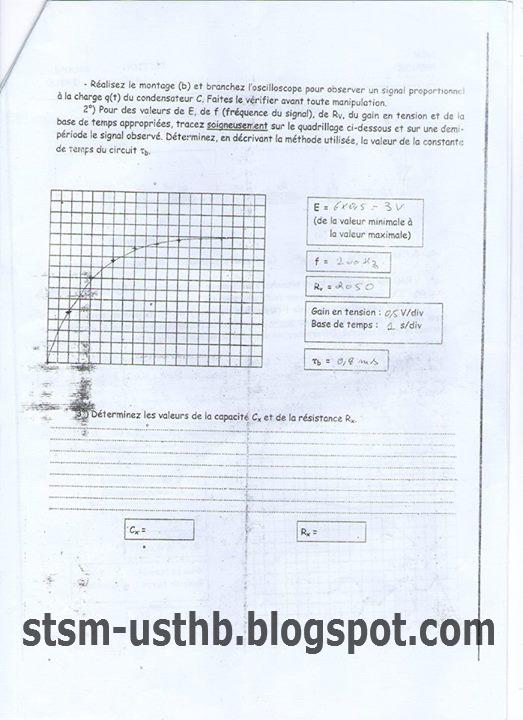 - Réalisez le montage (b) et branchez l'oscilloscope pour observer un signal proportionnel
à la charge q(t) du condensateur C. Faites le vérifier avant toute manipulation.
2°) Pour des valeurs de E, de f (fréquence du signal), de Rv, du gain en tension et de la
base de temps appropriées, tracez soigneusement sur le quadrillage ci-dessous et sur une demi-
période le signal observé. Déterminez, en décrivant la méthode utilisée, la valeur de la constante
de temps du circuit τb.
E = 6x0,5 = 3 V
(de la valeur minimale à
la valeur maximale)
f = 200 Hz
Rv = 2050
Gain en tension : 0,5 V/div
Base de temps : 1 s/div
τb = 0,8 ms
3°) Déterminez les valeurs de la capacité Cx et de la résistance Rx.
Cx =
Rx =
stsm-usthb.blogspot.com